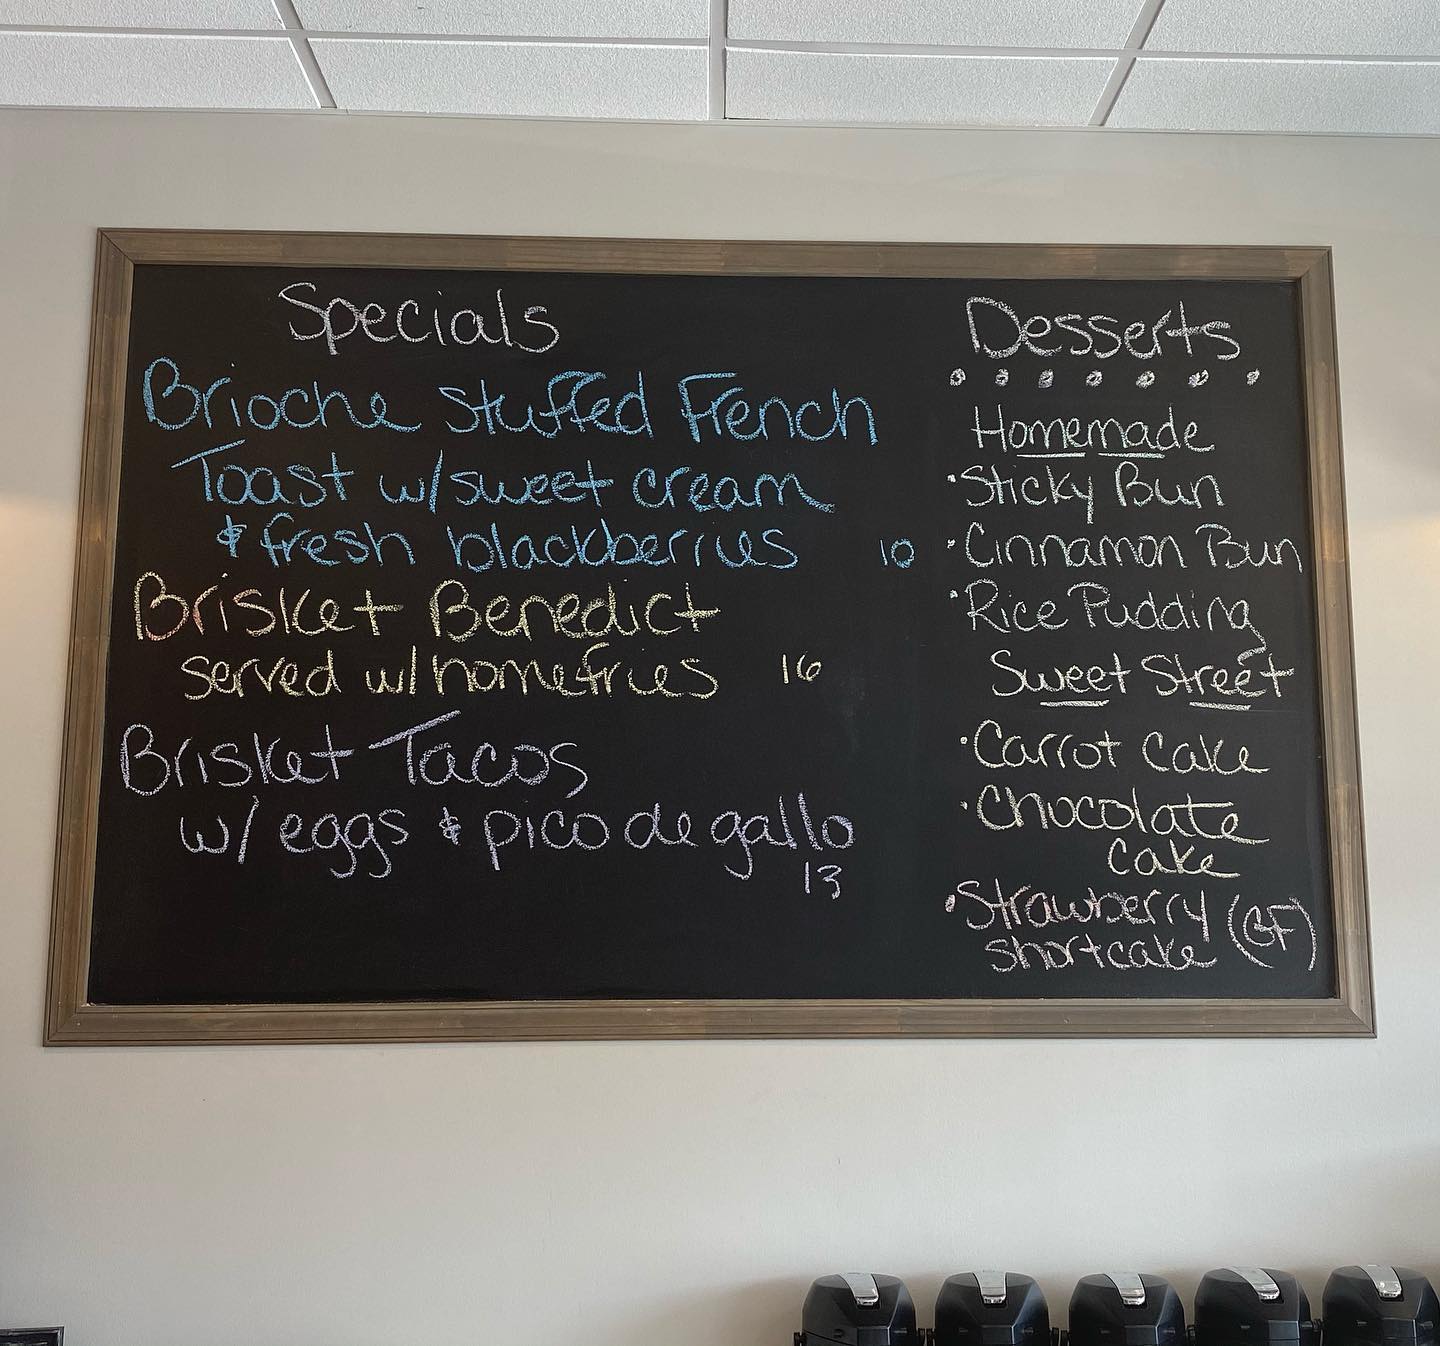 Specials
Brioche Stuffed French
Toast w/sweet cream
& fresh blackberries 10
Brisket Benedict
served w/homefries 16
Brisket Tacos
w/ eggs & pico de gallo
13
Desserts
Homemade
• Sticky Bun
• Cinnamon Bun
• Rice Pudding
Sweet Street
• Carrot Cake
• Chocolate
Cake
• Strawberry (GF)
shortcake